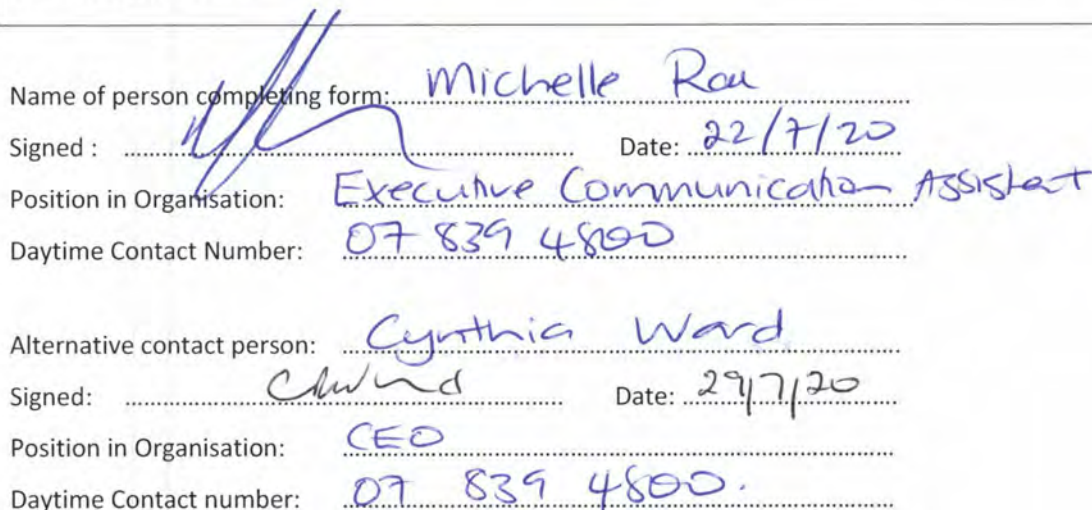 Name of person completing form: Michelle Rau
Signed : Date: 22/7/20
Position in Organisation: Executive Communication Assistant
Daytime Contact Number: 07 839 4800
Alternative contact person: Cynthia Ward
Signed: CAWard Date: 29/7/20
Position in Organisation: CEO
Daytime Contact number: 07 839 4800.